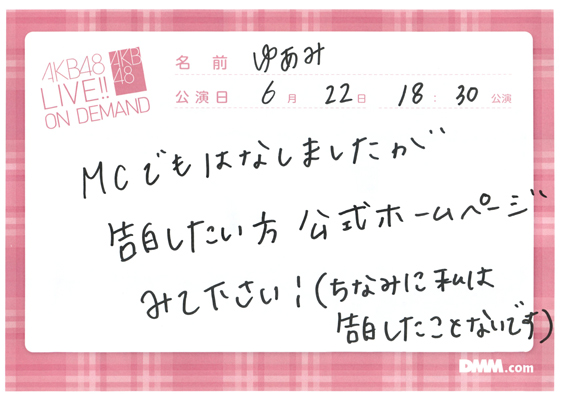 AKB48
LIVE!!
ON DEMAND
AKB
48
名前 ゆあみ
公演日 6月 22日 18:30公演
MCでもはなしましたが
告白したい方 公式ホームページ
みて下さい!(ちなみに私は
告白したことないです)
DMM.com